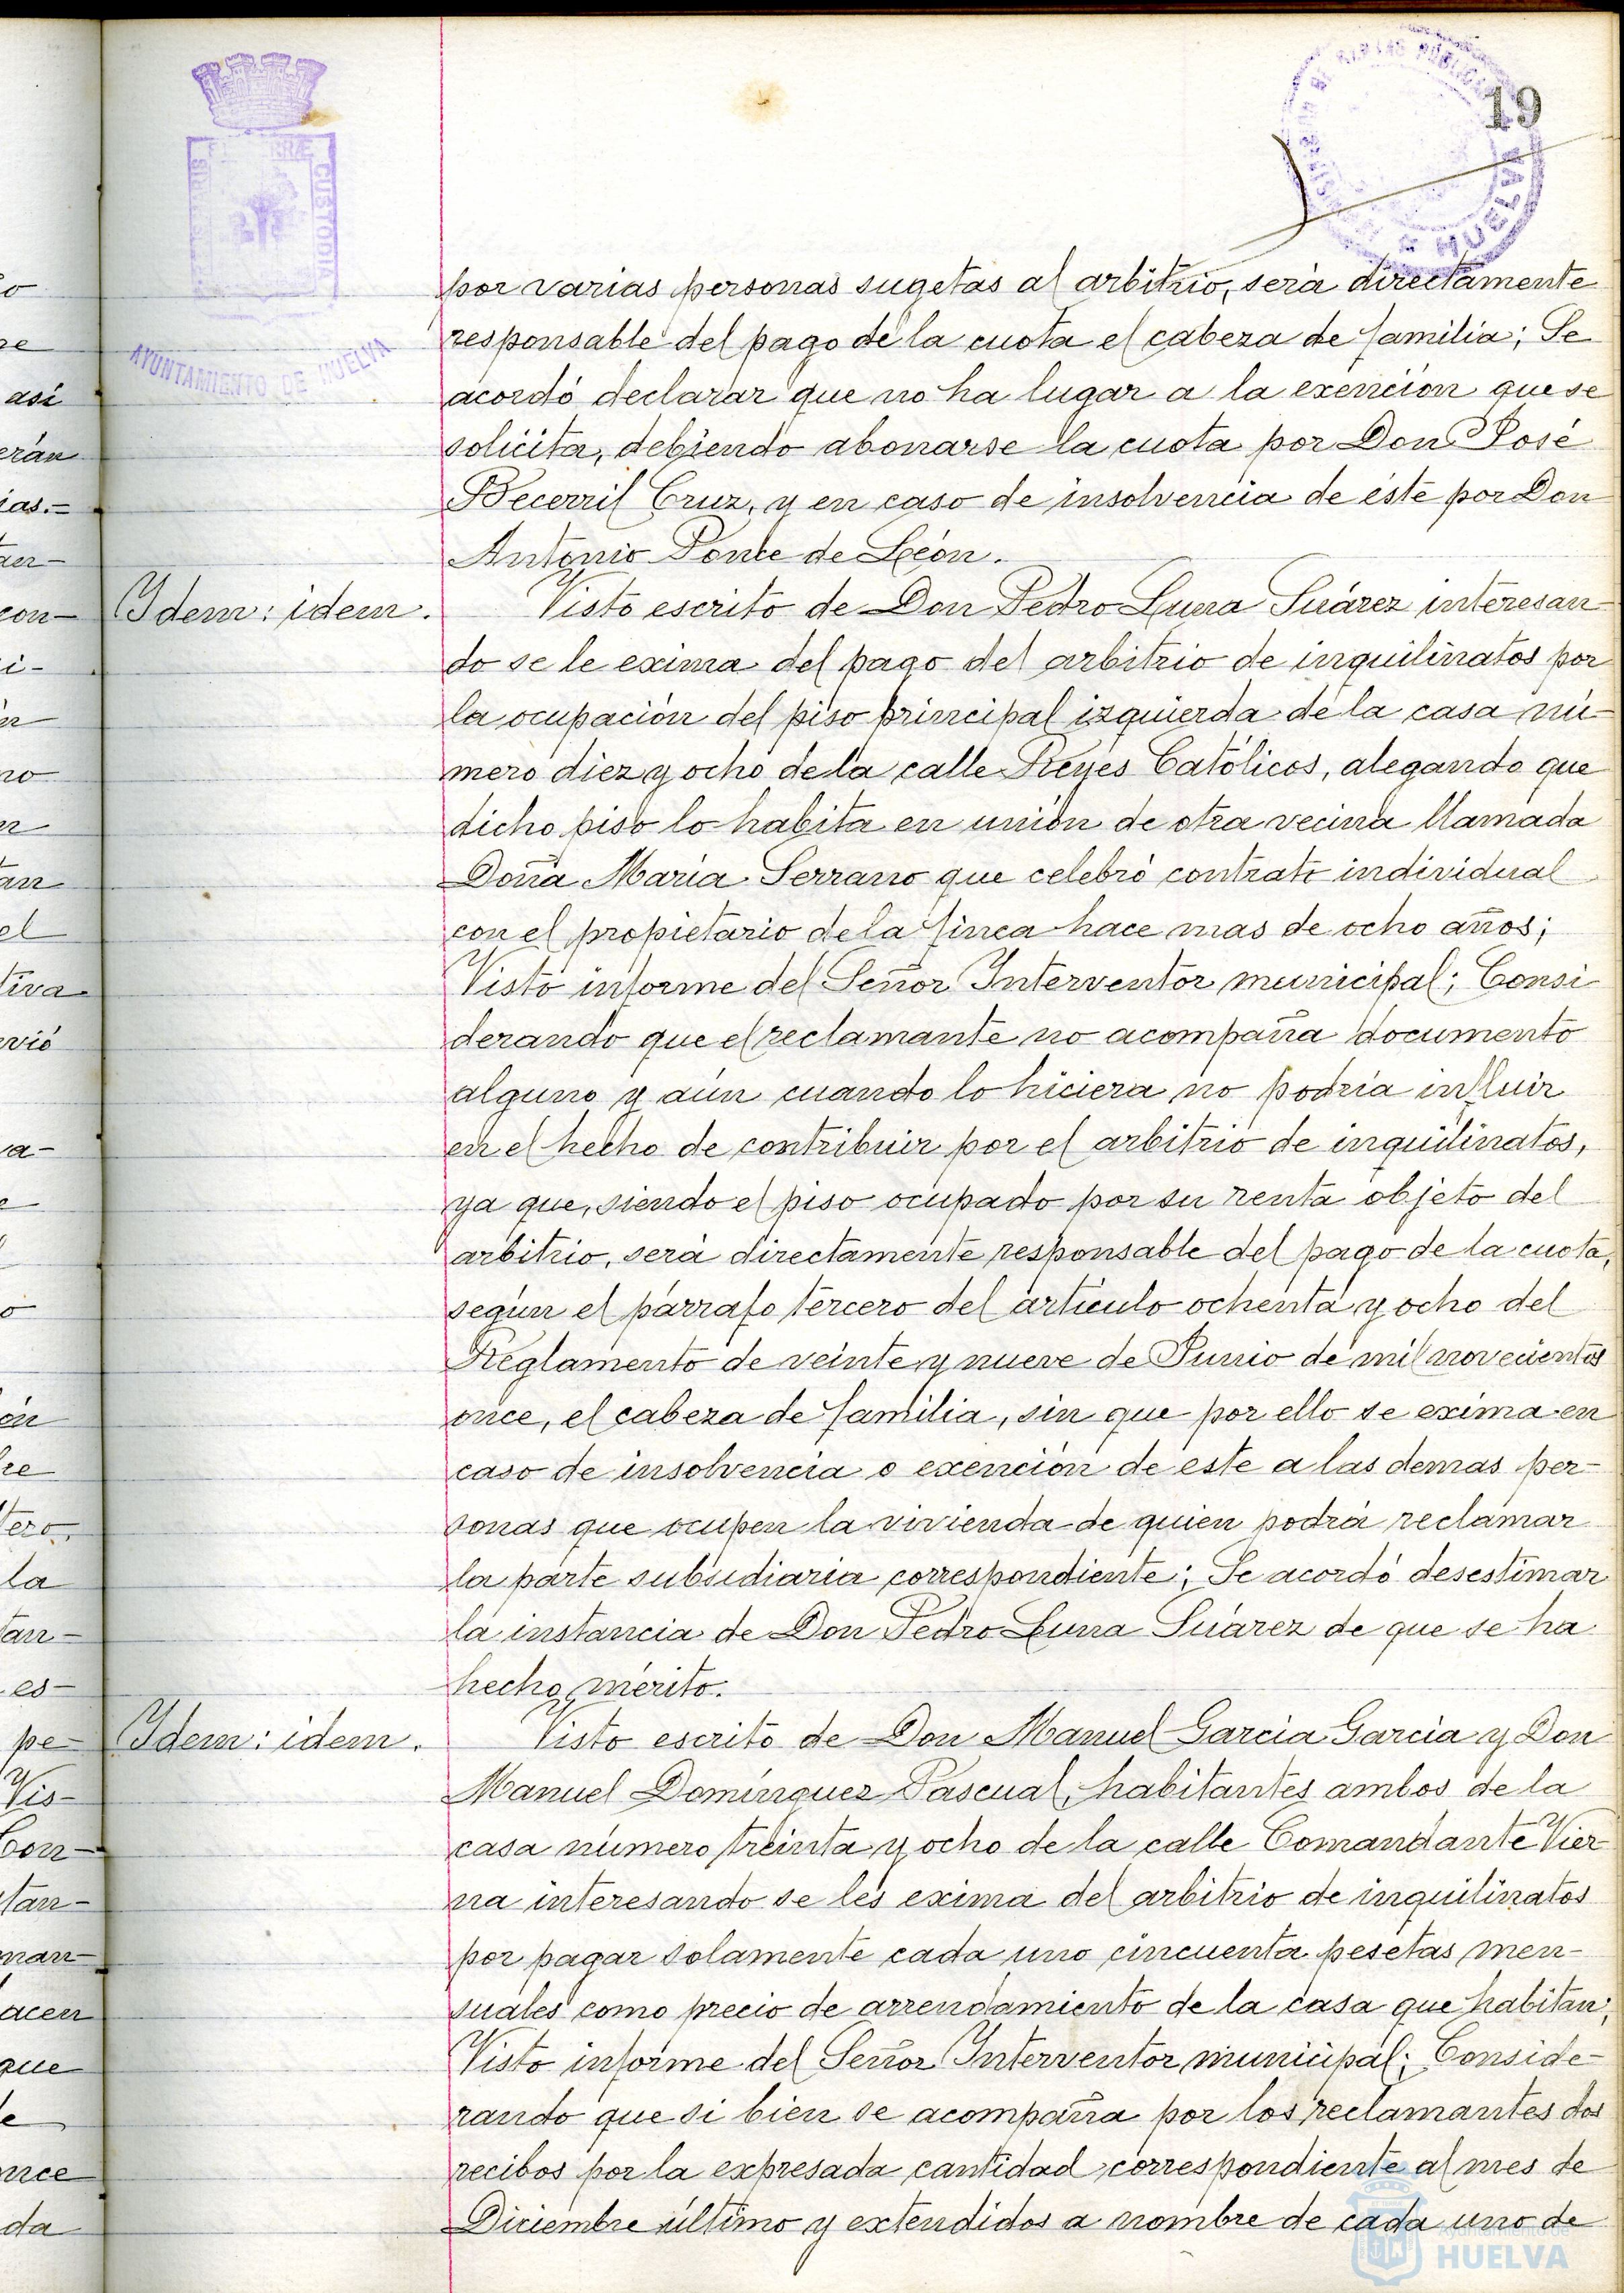 19
AYUNTAMIENTO DE HUELVA
CUSTODIA
HUELVA
por varias personas sugetas al arbitrio, será directamente
responsable del pago de la cuota el cabeza de familia; Se
acordó declarar que no ha lugar a la exención que se
solicita, debiendo abonarse la cuota por Don José
Becerril Cruz, y en caso de insolvencia de éste por Don
Antonio Ponce de León.
Idem: idem. Visto escrito de Don Pedro Luna Suárez interesan-
do se le exima del pago del arbitrio de inquilinatos por
la ocupación del piso principal izquierda de la casa nú-
mero diez y ocho de la calle Reyes Católicos, alegando que
dicho piso lo habita en unión de otra vecina llamada
Doña María Serrano que celebró contrato individual
con el propietario de la finca hace mas de ocho años;
Visto informe del Señor Interventor municipal; Consi
derando que el reclamante no acompaña documento
alguno y aún cuando lo hiciera no podría influir
en el hecho de contribuir por el arbitrio de inquilinatos,
ya que, siendo el piso ocupado por su renta objeto del
arbitrio, será directamente responsable del pago de la cuota,
según el párrafo tercero del artículo ochenta y ocho del
Reglamento de veinte y nueve de Junio de mil novecientos
once, el cabeza de familia, sin que por ello se exima en
caso de insolvencia o exención de este a las demas per-
sonas que ocupen la vivienda de quien podrá reclamar
la parte subsidiaria correspondiente; Se acordó desestimar
la instancia de Don Pedro Luna Suárez de que se ha
hecho mérito.
Idem: idem. Visto escrito de Don Manuel García García y Don
Manuel Domínguez Pascual, habitantes ambos de la
casa número treinta y ocho de la calle Comandante Vier
na interesando se les exima del arbitrio de inquilinatos
por pagar solamente cada uno cincuenta pesetas men-
suales como precio de arrendamiento de la casa que habitan;
Visto informe del Señor Interventor municipal; Conside-
rando que si bien se acompaña por los reclamantes dos
recibos por la expresada cantidad correspondiente al mes de
Diciembre último y extendidos a nombre de cada uno de
Ayuntamiento de
HUELVA